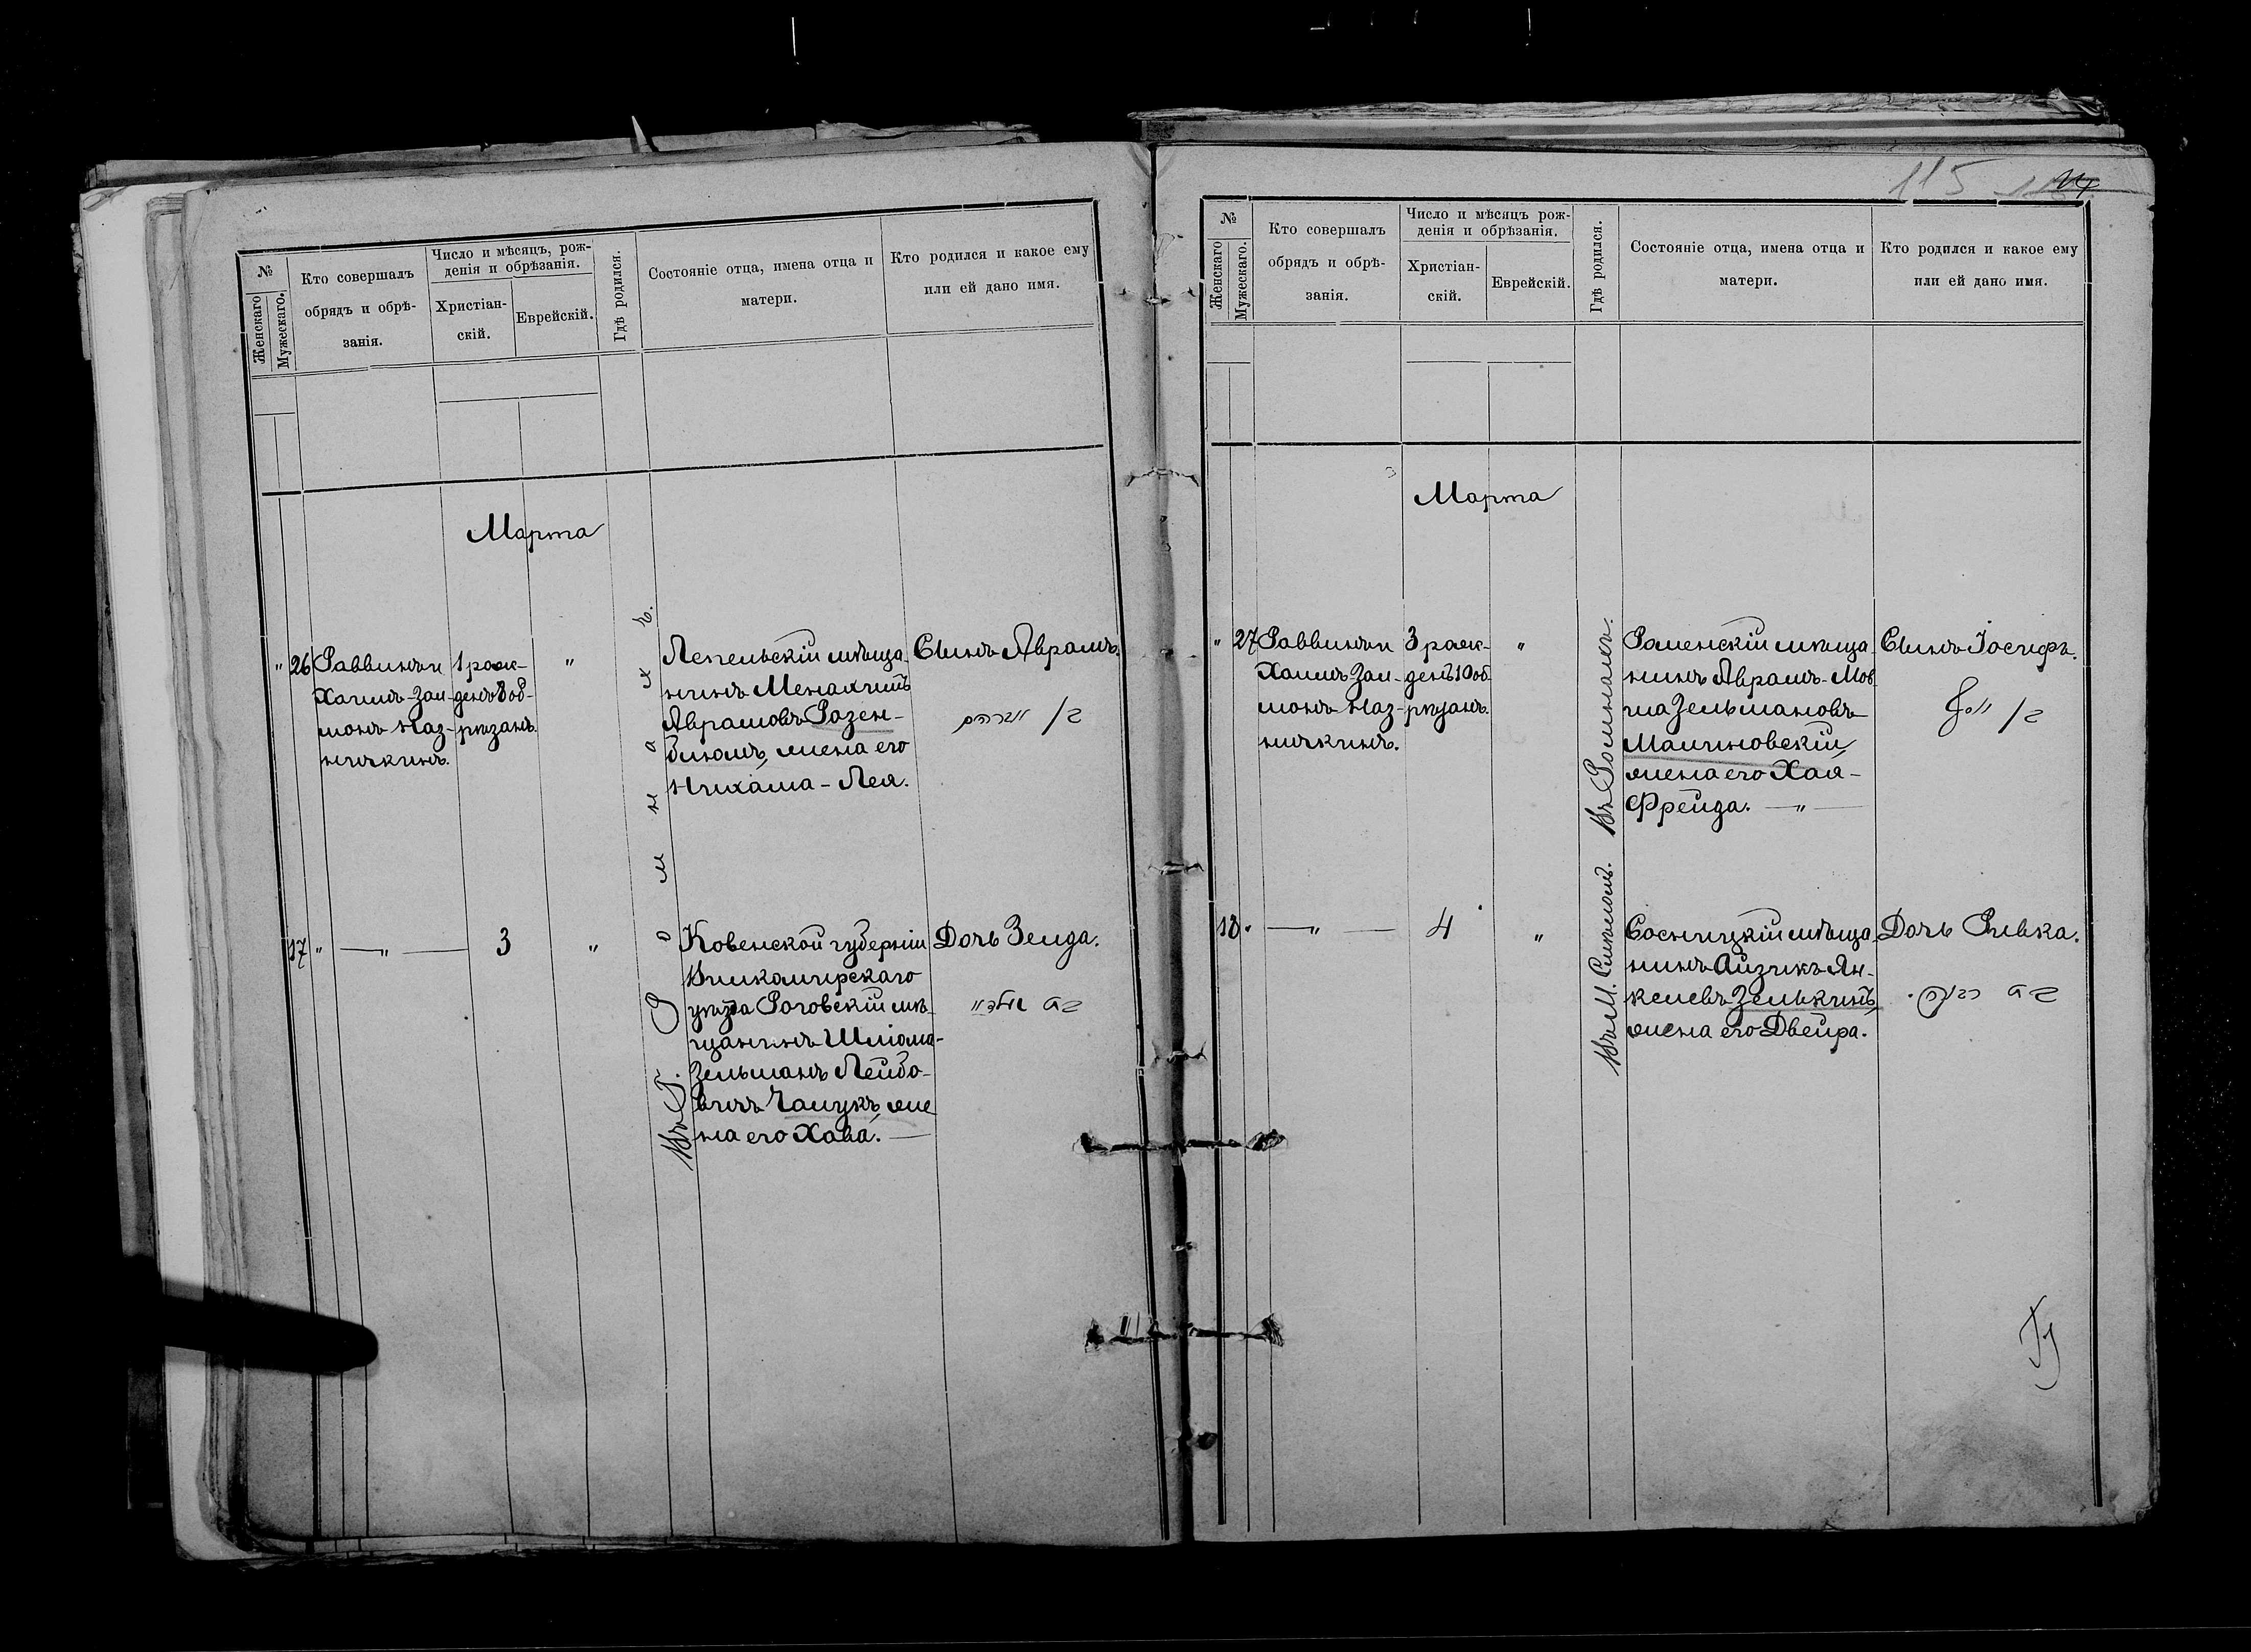 №
Женскаго
Мужескаго.
Кто совершалъ
обрядъ и обрѣ-
занія.
Число и мѣсяцъ, рож-
денія и обрѣзанія.
Христіан-
скій.
Еврейскій.
Гдѣ родился.
Состояніе отца, имена отца и
матери.
Кто родился и какое ему
или ей дано имя.
Марта
" 26
Раввинъ и
Хаимъ-Зал-
монъ Наз-
1 рож-
денъ 8 об-
рѣзанъ.
"
Въ Г. Ромнахъ.
Лепельскій мѣща-
нинъ Менахимъ
Абрамовъ Розен-
блюмъ, жена его
Нихама-Лея.
Сынъ Абрамъ.
אברהם
17 " — " —
3
"
Ковенской губерніи
Вилкомирскаго
уѣзда Роговскій мѣ-
щанинъ Шліома-
Зельманъ Лейбо-
вичъ Чалукъ, же-
на его Хава. —
Дочь Зелда.
115
№
Женскаго
Мужескаго.
Кто совершалъ
обрядъ и обрѣ-
занія.
Число и мѣсяцъ рож-
денія и обрѣзанія.
Христіан-
скій.
Еврейскій.
Гдѣ родился.
Состояніе отца, имена отца и
матери.
Кто родился и какое ему
или ей дано имя.
Марта
" 27
Раввинъ и
Хаимъ Зал-
монъ Наз-
3 рож-
денъ 10 об-
рѣзанъ.
"
Въ Ромнахъ.
Роменскій мѣща-
нинъ Абрамъ-Мов-
ша Зельмановъ
Малиновскій,
жена его Хая-
Фрейда. — " —
Сынъ Іосифъ.
18 " — " —
4
"
Въ М.
Сосницкій мѣща-
нинъ Айзикъ Ян-
келевъ Зелькинъ,
жена его Двейра.
Дочь Ривка.
רבקה